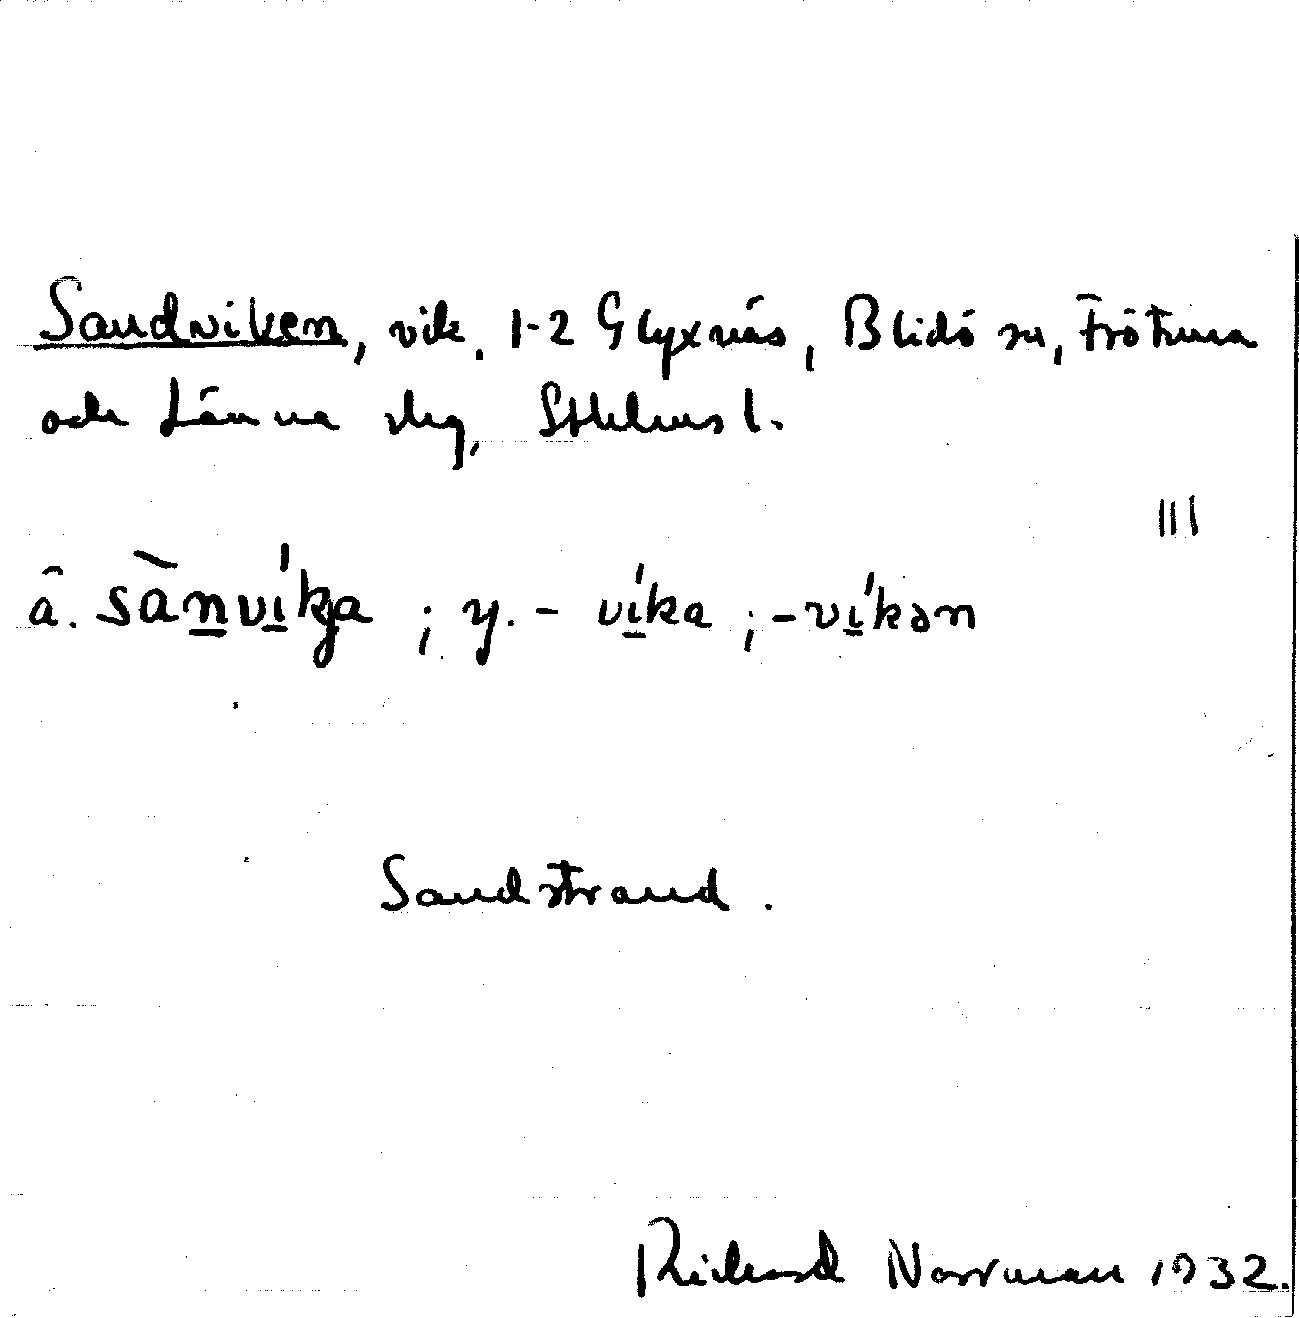 Sandviken, vik, 1-2 Glyxnäs, Blidö sn, Frötuna
och Länna slg, Sthlms l.
III
ä. sànvíkja ; y. - víka ; -víkən
Sandstrand.
Rickard Norrman 1932.